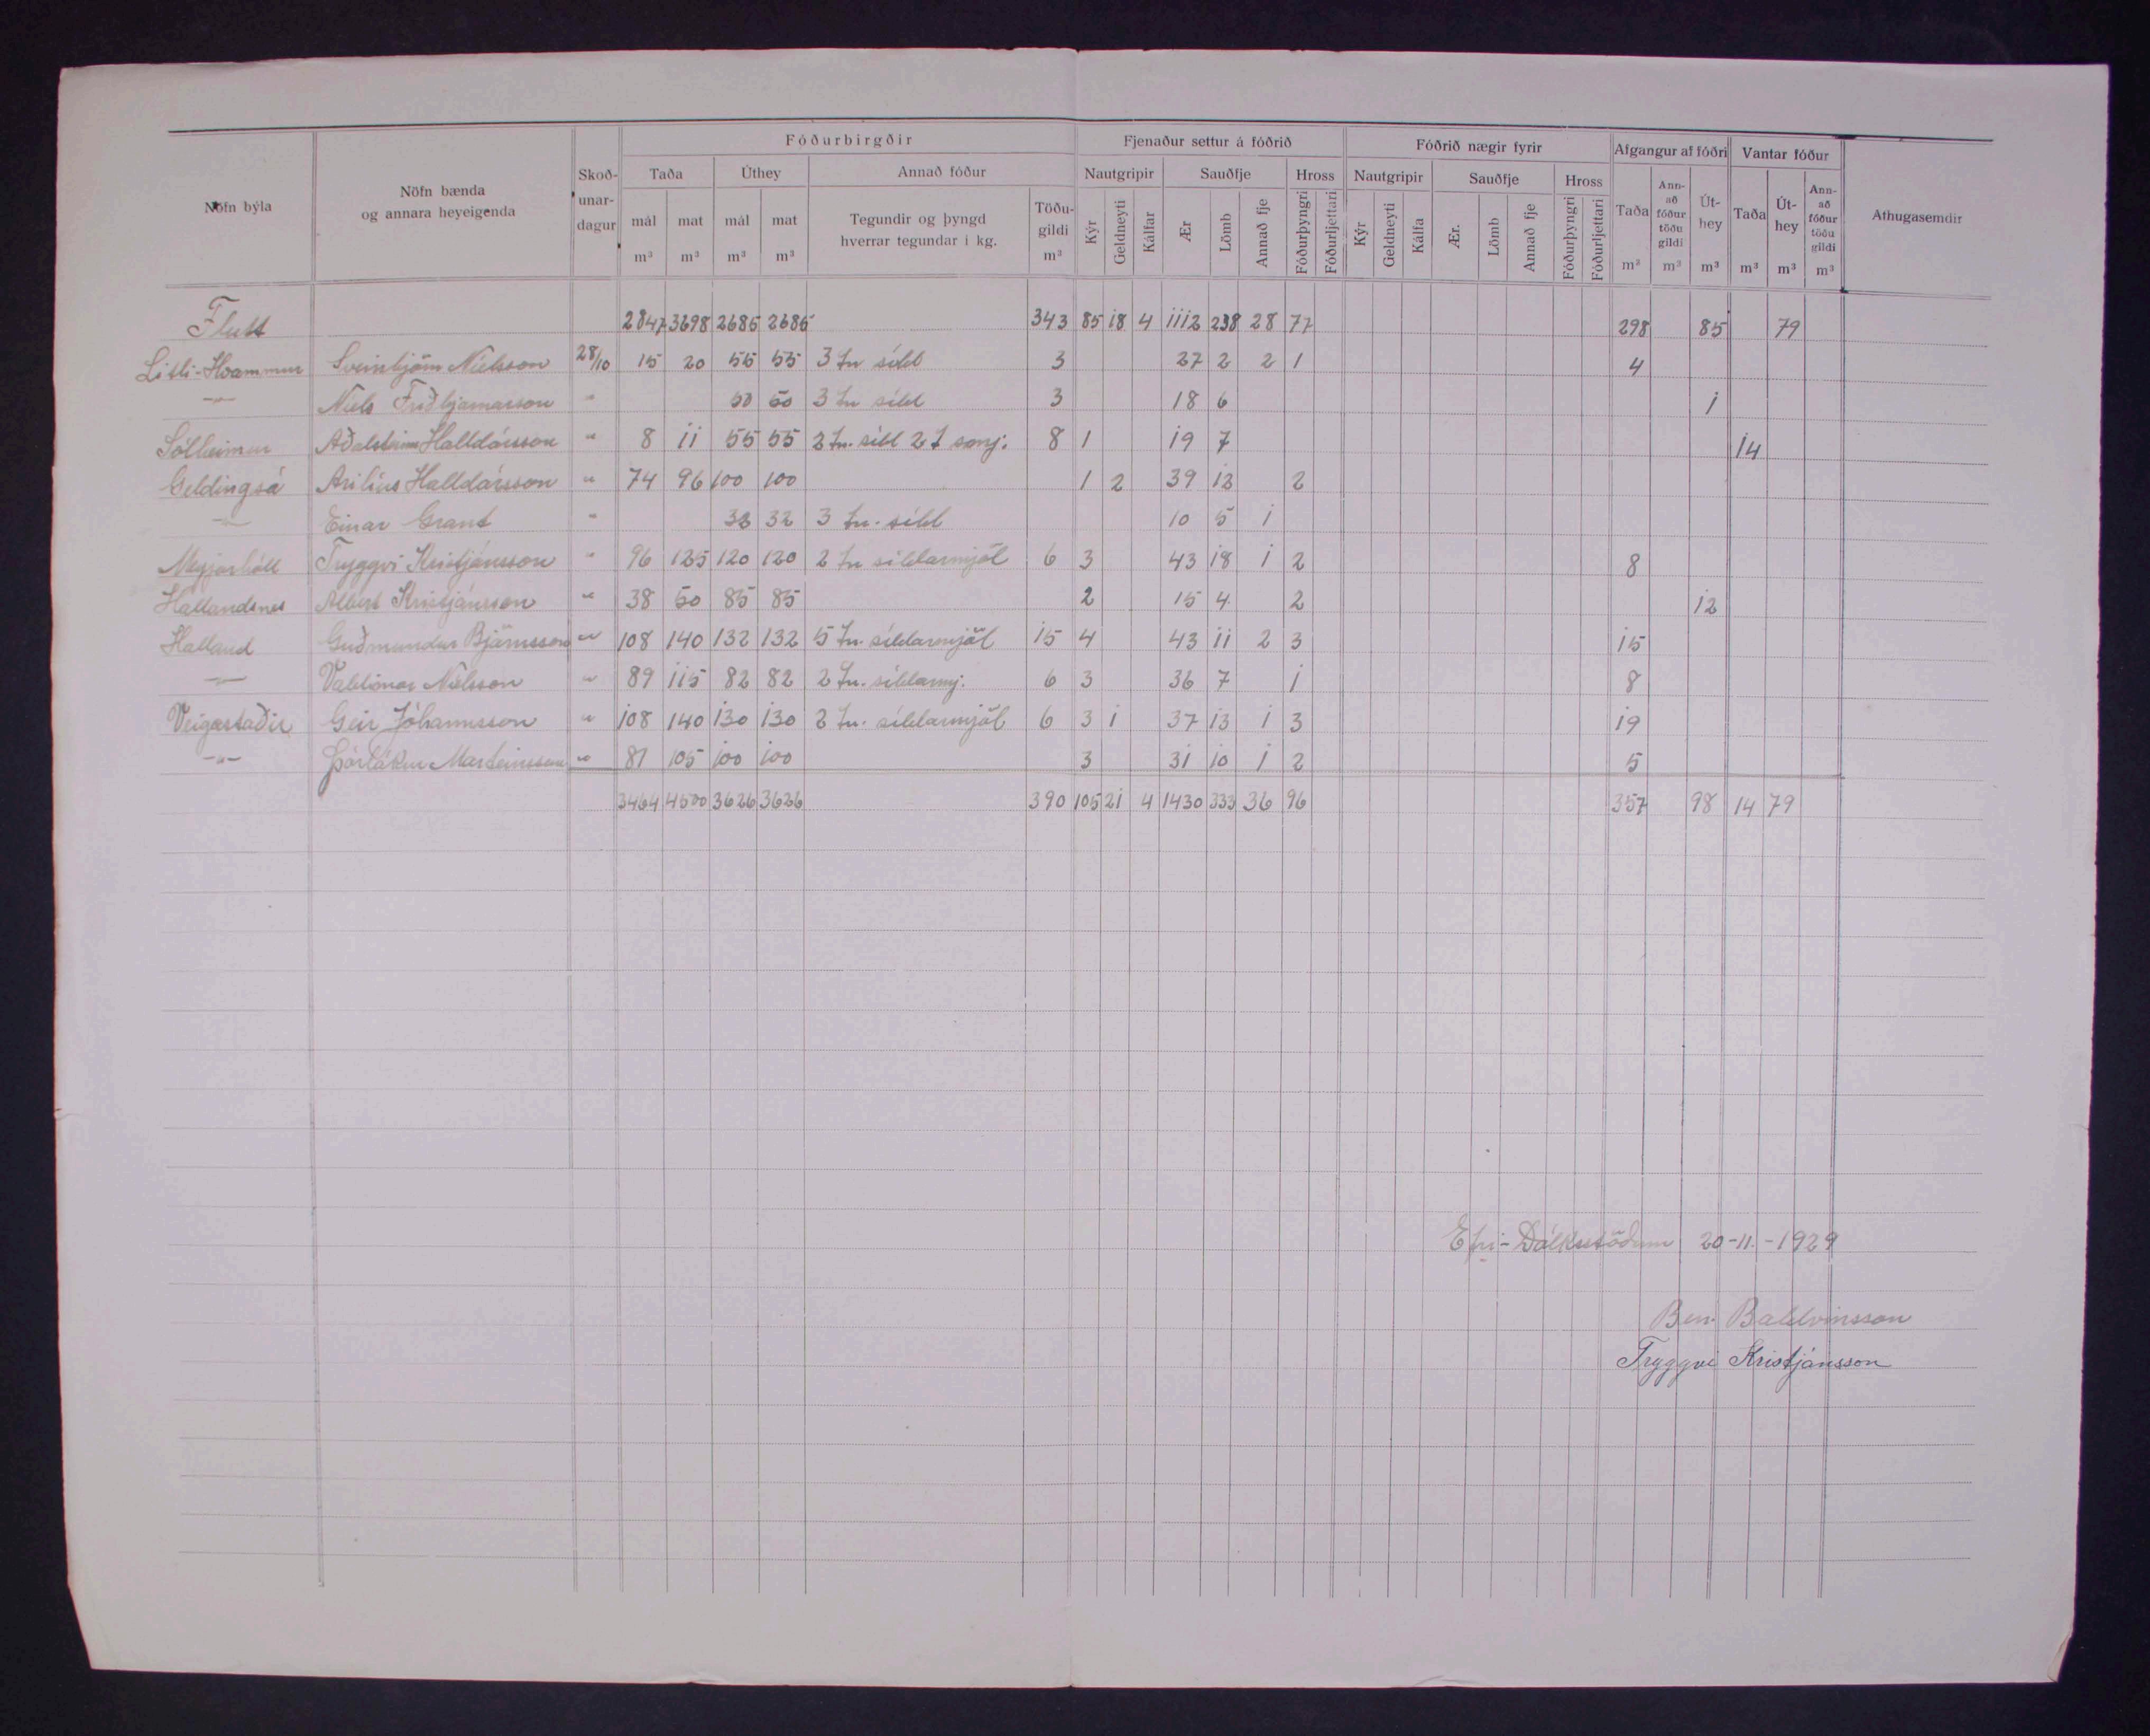 Fóðurbirgðir Fjenaður settur á fóðrið Fóðrið nægir fyrir Afgangur af fóðri Vantar fóður
Nöfn býla Nöfn bænda og annara heyeigenda Skoð-unar-dagur Taða Úthey Annað fóður Nautgripir Sauðfje Hross Nautgripir Sauðfje Hross Taða Ann-að fóður töðu gildi Út-hey Taða Út-hey Ann-að fóður töðu gildi Athugasemdir
mál mat mál mat Tegundir og þyngd hverrar tegundar í kg. Töðu-gildi Kýr Geldneyti Kálfar Ær Lömb Annað fje Fóðurþyngri Fóðurljettari Kýr Geldneyti Kálfa Ær. Lömb Annað fje Fóðurþyngri Fóðurljettari
m³ m³ m³ m³ m³ m³ m³ m³ m³ m³ m³
Flutt 2847 3698 2685 2685 343 85 18 4 1112 238 28 77 298 85 79
Litli-Hvammur Sveinbjörn Níelsson 28/10 15 20 55 55 3 tn síld 3 27 2 2 1 4
-"- Níels Friðbjarnarson " 50 50 3 tn síld 3 18 6 1
Sólheimar Aðalsteinn Halldórsson " 8 11 55 55 2 tn. síld 2 t 8 1 19 7 14
Geldingsá Arilíus Halldórsson " 74 96 100 100 1 2 39 12 2
-"- Einar Grant " 32 32 3 tn. síld 10 5 1
Meyjarhóll Tryggvi Kristjánsson " 96 125 120 120 2 tn síldarmjöl 6 3 43 18 1 2 8
Hallandsnes Albert Kristjánsson " 38 50 85 85 2 15 4 2 12
Halland Guðmundur Björnsson " 108 140 132 132 5 tn. síldarmjöl 15 4 43 11 2 3 15
-"- Valdimar Níelsson " 89 115 82 82 2 tn. síldarmj. 6 3 36 7 1 8
Veigastaðir Geir Jóhannsson " 108 140 130 130 2 tn. síldarmjöl 6 3 1 37 13 1 3 19
-"- Þorlákur Marteinsson " 81 105 100 100 3 31 10 1 2 5
3464 4500 3626 3626 390 105 21 4 1430 333 36 96 357 98 14 79
Efri-Dálkstöðum 20-11.-1929
Ben. Baldvinsson
Tryggvi Kristjánsson